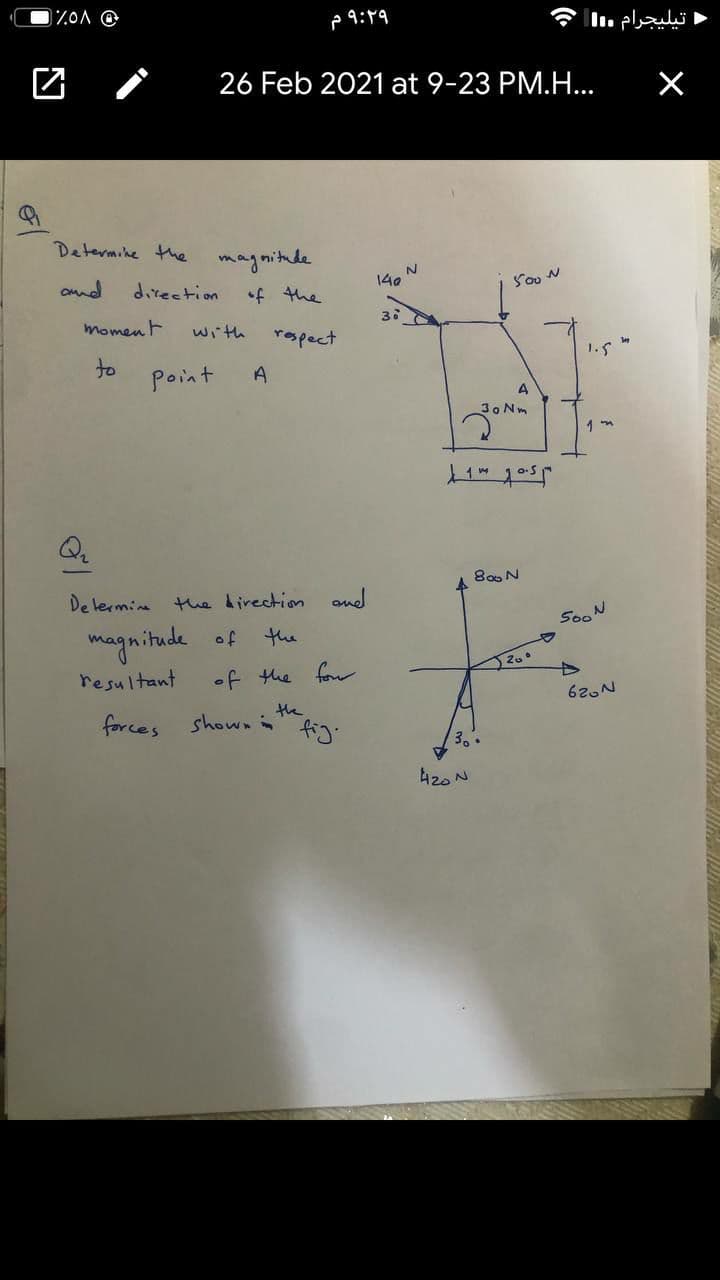 ٪٥٨ ٩:٢٩ م تيليجرام
26 Feb 2021 at 9-23 PM.H...
Q1
Determine the magnitude
and direction of the
moment with respect
to point A
140 N
30°
500 N
1.5 m
A
30 Nm
1 m
1 m 0.5 m
Q2
Determine the direction and
magnitude of the
resultant of the four
forces shown in the fig.
800 N
500 N
20°
620 N
30°
420 N